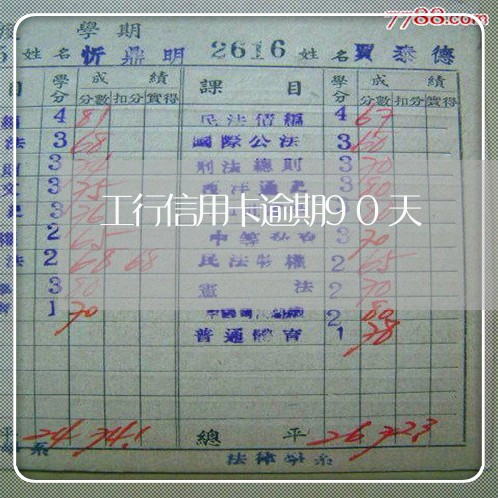 7788.com
學期
姓名 忻鼎明 2616 姓名 賈泰德
目 學分 成績 課目 學分 成績
分數 扣分 實得 分數 扣分 實得
4 81 民法債編 4 67
法 3 68 國際公法 3 60
3 刑法總則 3 70
3 75 3 80
工行信用卡逾期90天
2 65 3 70
法 2 68 68 民法物權 2 65
3 80 憲法 2 70
1 70 2 80
普通體育 1 78
平 24 74.1 總平 26 72.3
系 法律學系